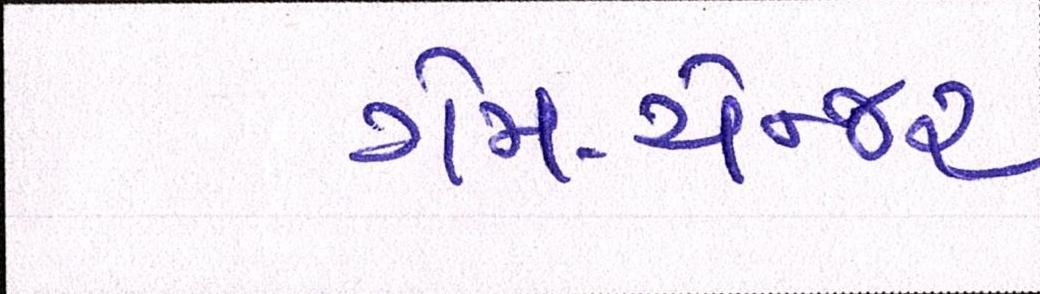 ગેમ-ચેન્જર